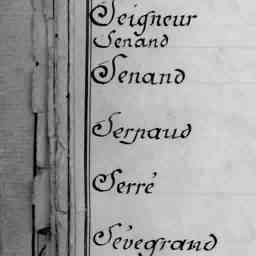 Seigneur
Senand
Senand
Serpaud
Serré
Sévegrand